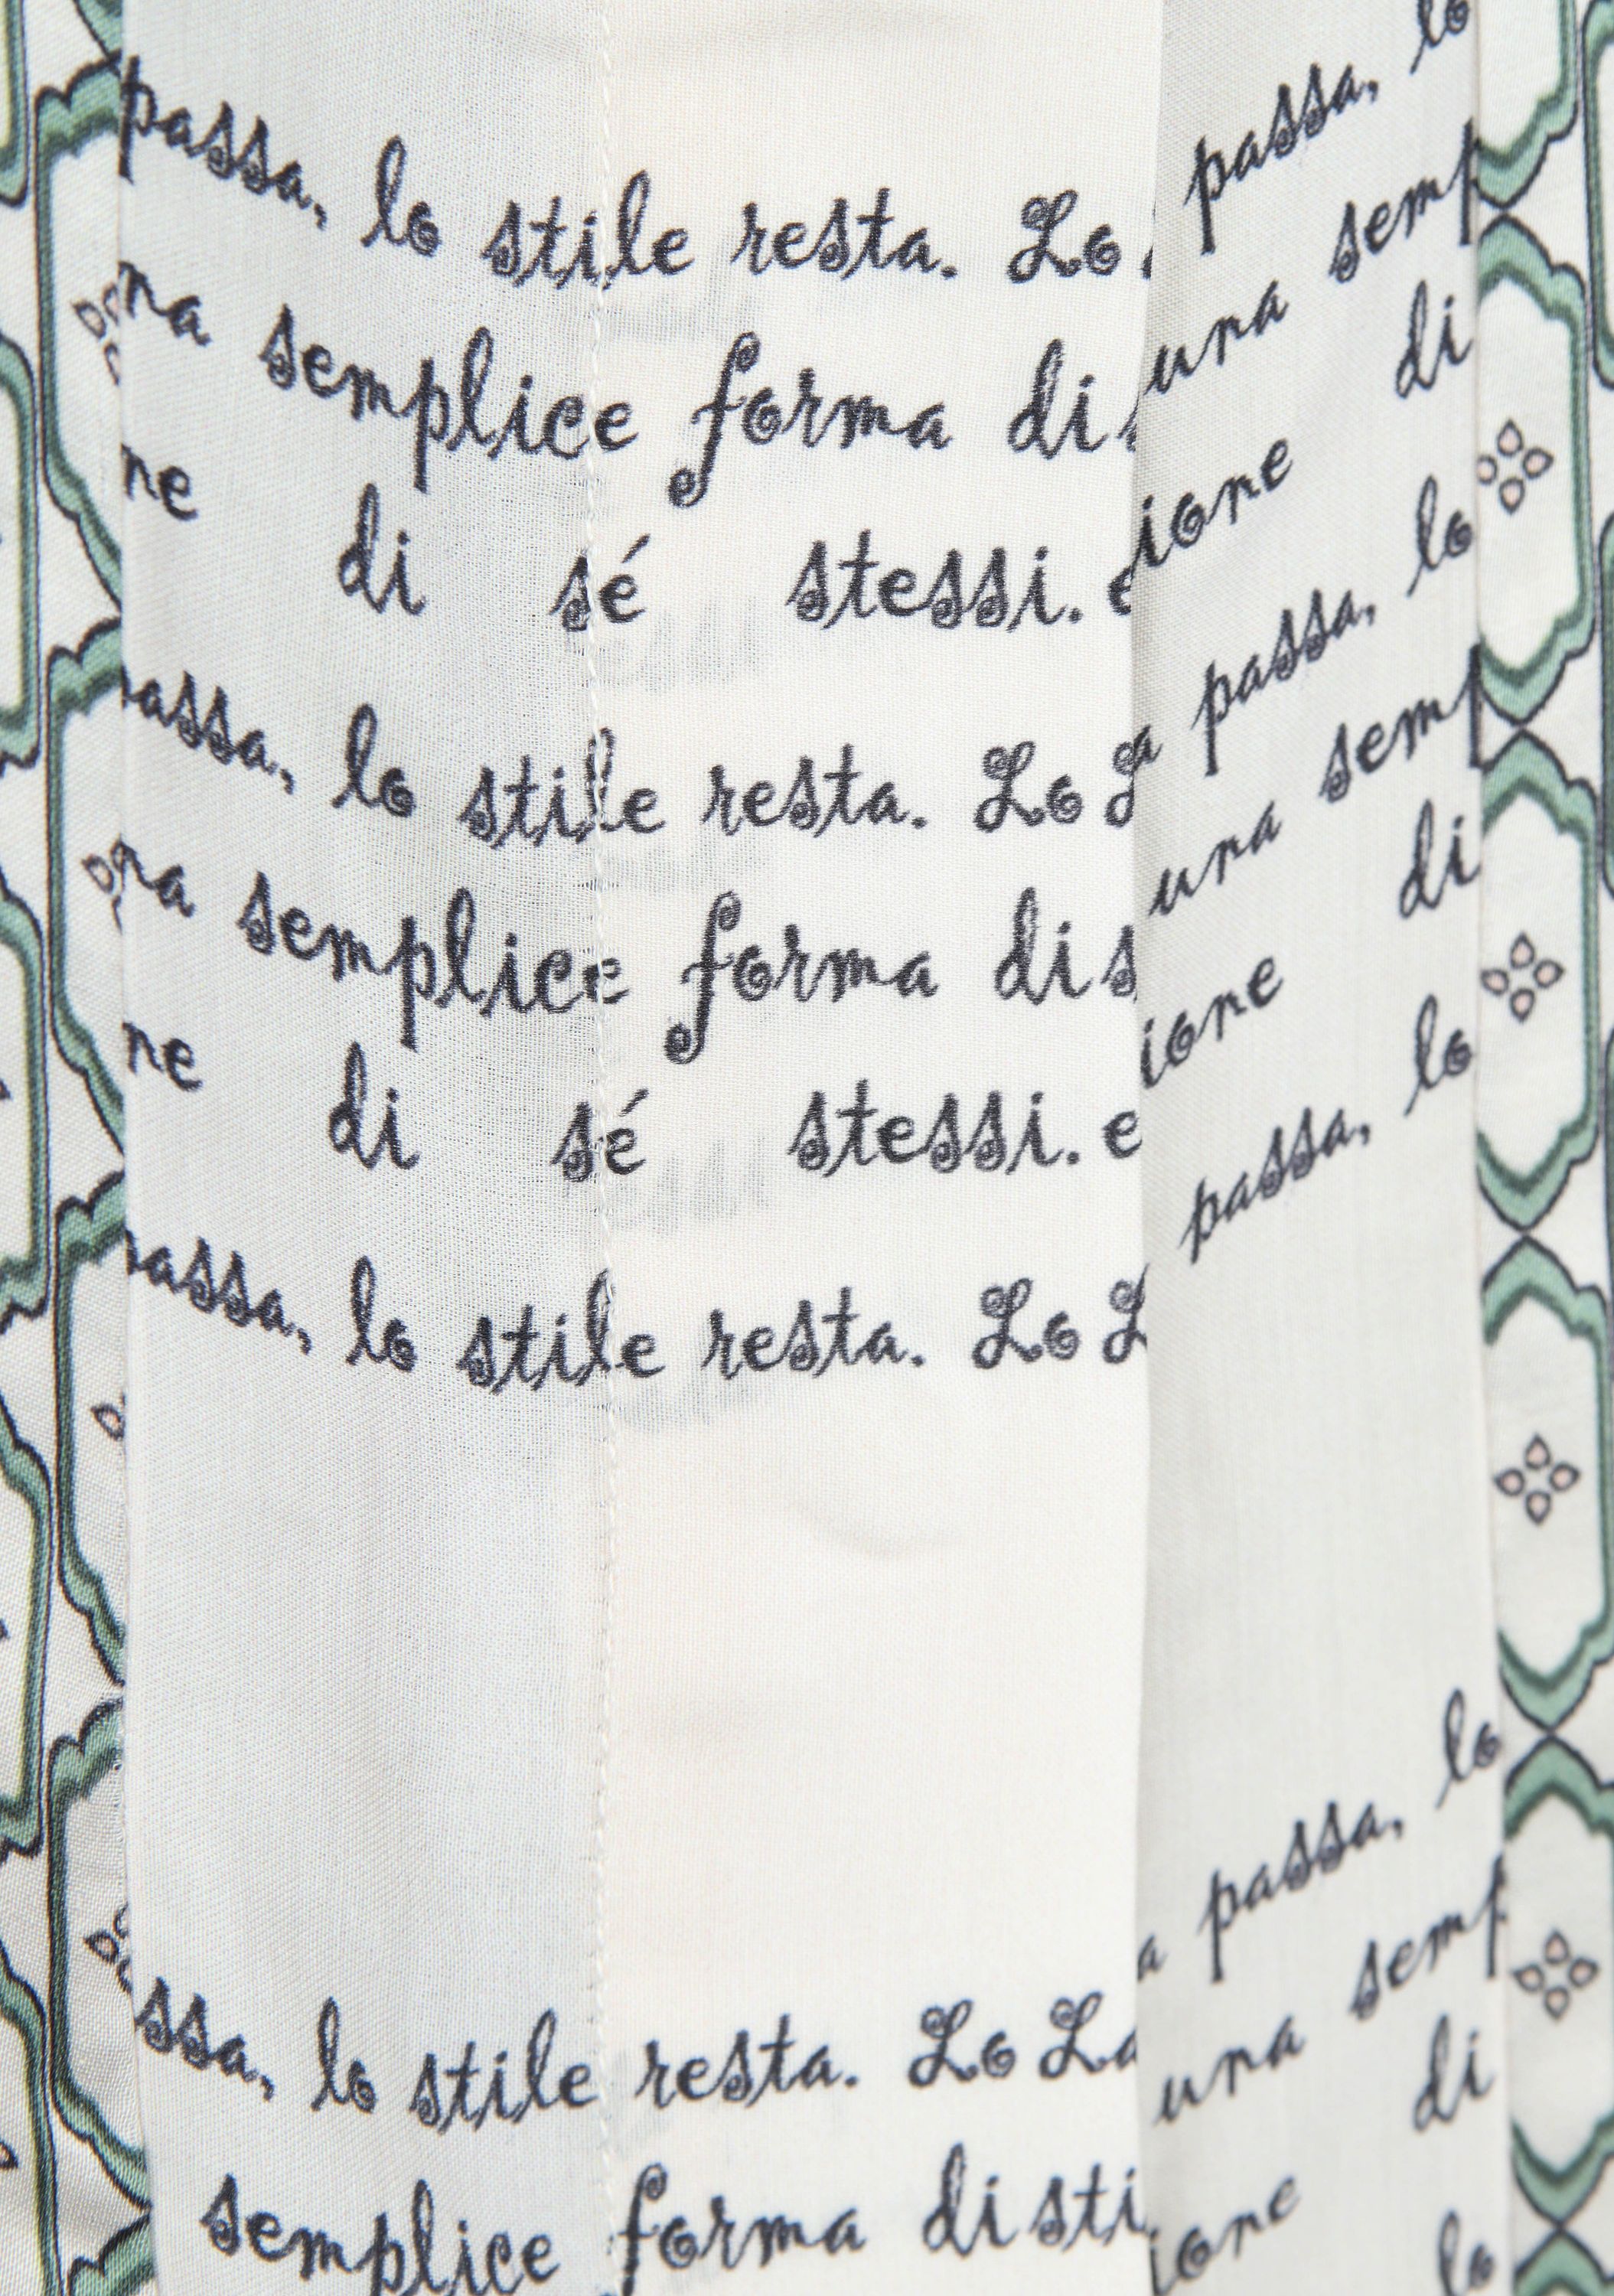 passa, lo stile resta. Lo
passa, lo
na semplice forma di
una semp
ne di sé stessi. e
ione di
assa, lo stile resta. Lo L
a passa, lo
na semplice forma di s
una semp
ne di sé stessi. e
ione di
assa, lo stile resta. Lo L
passa, lo
ssa, lo stile resta. Lo La
a passa, lo
semplice forma di sti
una semp
ione di
lo